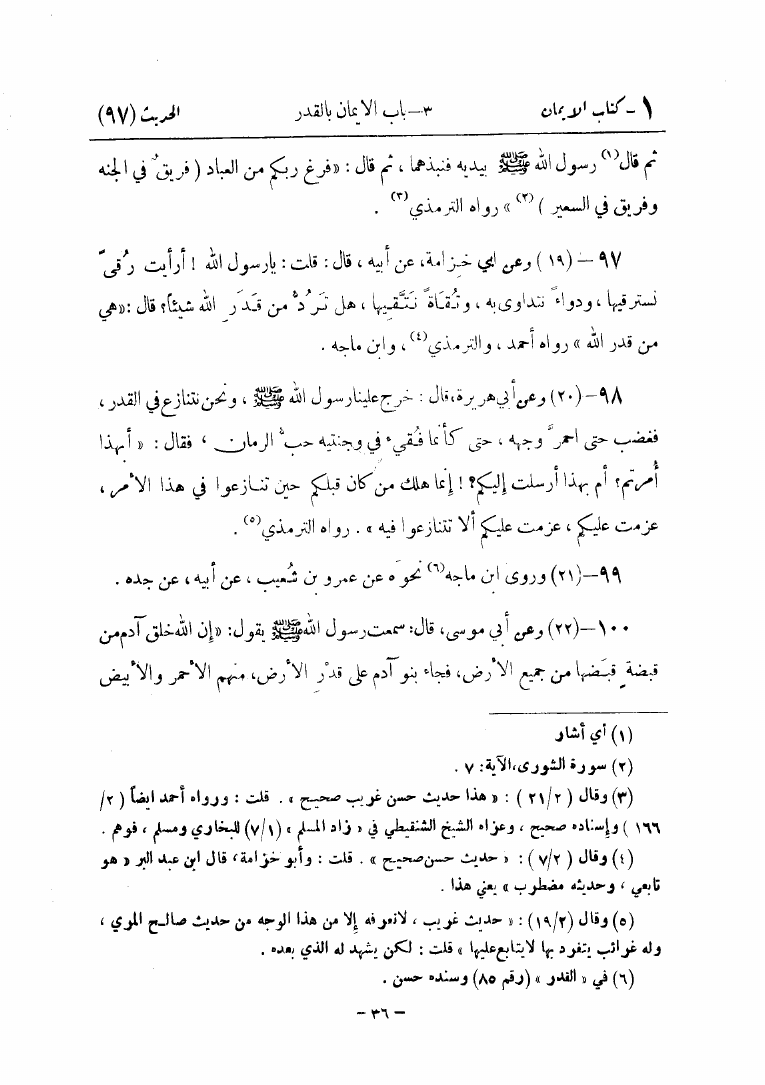 ١ - كتاب الايمان ٣ - باب الايمان بالقدر الحديث (٩٧)
ثم قال(١) رسول الله ﷺ بيديه فنبذهما ، ثم قال : «فرغ ربكم من العباد ( فريقٌ في الجنه
وفريق في السعير ) (٢) » رواه الترمذي(٣) .
٩٧ - (١٩) وعن ابي خِزامة، عن أبيه ، قال : قلت : يارسول الله ! أرأيت رُقىً
نسترقيها ، ودواءً نتداوى به ، وتُقاةً نَتَّقيها ، هل تَرُدُّ من قَدَرِ الله شيئاً؟ قال : «هي
من قدر الله » رواه أحمد ، والترمذي(٤) ، وابن ماجه .
٩٨ - (٢٠) وعن أبي هريرة، قال : خرج علينا رسول الله ﷺ ، ونحن نتنازع في القدر ،
فغضب حتى احمرَّ وجهه ، حتى كأنما فُقيءَ في وجنتيه حبُّ الرمان ، فقال : « أبهذا
أُمرتم؟ أم بهذا أرسلت إليكم؟! إنما هلك من كان قبلكم حين تنازعوا في هذا الأمر ،
عزمت عليكم ، عزمت عليكم ألا تتنازعوا فيه » . رواه الترمذي(٥) .
٩٩ - (٢١) وروى ابن ماجه(٦) نحوَه عن عمرو بن شُعيب ، عن أبيه ، عن جده .
١٠٠ - (٢٢) وعن أبي موسى، قال: سمعت رسول الله ﷺ يقول: «إن الله خلق آدم من
قبضةٍ قبَضها من جميع الأرض، فجاء بنو آدم على قدْرِ الأرض، منهم الأحمر والأبيض
(١) أي أشار
(٢) سورة الشورى،الآية: ٧ .
(٣) وقال ( ٢١/٢ ) : « هذا حديث حسن غريب صحيح » . قلت : ورواه أحمد ايضاً ( ٢/
١٦٦ ) وإسناده صحيح ، وعزاه الشيخ الشنقيطي في « زاد المسلم » (٧/١) للبخاري ومسلم ، فوهم .
(٤) وقال ( ٧/٢ ) : « حديث حسن صحيح » . قلت : وأبو خزامة، قال ابن عبد البر « هو
تابعي ، وحديثه مضطرب » يعني هذا .
(٥) وقال (١٩/٢) : « حديث غريب ، لانعرفه إلا من هذا الوجه من حديث صالح المري ،
وله غرائب يتفرد بها لايتابع عليها » قلت : لكن يشهد له الذي بعده .
(٦) في « القدر » (رقم ٨٥) وسنده حسن .
- ٣٦ -